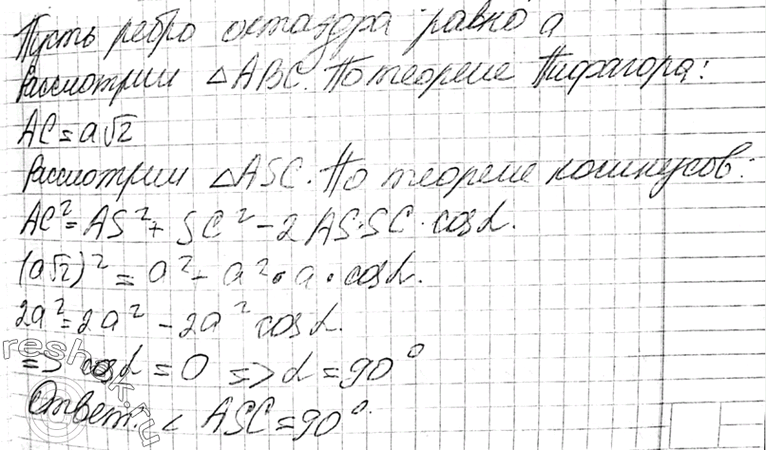 Пусть ребро октаэдра равно a
Рассмотрим △ABC. По теореме Пифагора:
AC=a√2
Рассмотрим △ASC. По теореме косинусов:
AC²=AS²+SC²-2AS·SC·cosα.
(a√2)²=a²-a²·a·cosα.
2a²=2a²-2a²cosα.
=>cosα=0 =>α=90°
Ответ: <ASC=90°.
reshak.ru